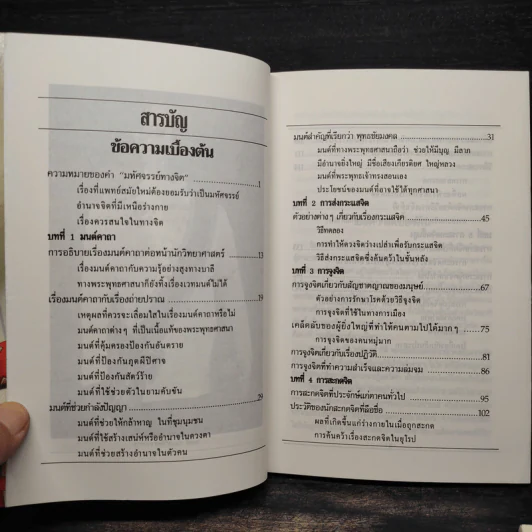 สารบัญ
ข้อความเบื้องต้น
ความหมายของคำ "มหัศจรรย์ทางจิต" ........ 1
เรื่องที่แพทย์สมัยใหม่ต้องยอมรับว่าเป็นมหัศจรรย์
อำนาจจิตที่มีเหนือร่างกาย
เรื่องควรสนใจในทางจิต
บทที่ 1 มนต์คาถา
การอธิบายเรื่องมนต์คาถาต่อหน้านักวิทยาศาสตร์ ........ 13
เรื่องมนต์คาถากับความรู้อย่างสูงทางบาลี
ทางพระพุทธศาสนาก็ยังทิ้งเรื่องเวทมนต์ไม่ได้
เรื่องมนต์คาถากับเรื่องถ่ายปราณ ........ 19
เหตุผลที่ควรจะเลื่อมใสในเรื่องมนต์คาถาหรือไม่
มนต์คาถาต่างๆ ที่เป็นเนื้อแท้ของพระพุทธศาสนา
มนต์ที่คุ้มครองป้องกันอันตราย
มนต์ที่ป้องกันภูตผีปิศาจ
มนต์ที่ป้องกันสัตว์ร้าย
มนต์ที่ใช้ช่วยตัวในยามคับขัน
มนต์ที่ช่วยกำลังปัญญา ........ 29
มนต์ที่ช่วยให้กล้าหาญ ในที่ชุมนุมชน
มนต์ที่ใช้สร้างเสน่ห์หรืออำนาจในดวงตา
มนต์ที่ช่วยสร้างอำนาจในตัวคน
มนต์สำคัญที่เรียกว่า พุทธชัยมงคล ........ 31
มนต์ที่ทางพระพุทธศาสนาถือว่า ช่วยให้มีบุญ มีลาภ
มีอำนาจยิ่งใหญ่ มีชื่อเสียงเกียรติยศ ใหญ่หลวง
มนต์ที่พระพุทธเจ้าทรงสอนเอง
ประโยชน์ของมนต์ที่อาจใช้ได้ทุกศาสนา
บทที่ 2 การส่งกระแสจิต
ตัวอย่างต่างๆ เกี่ยวกับเรื่องกระแสจิต ........ 45
วิธีทดลอง
การทำให้ดวงจิตว่างเปล่าเพื่อรับกระแสจิต
วิธีส่งกระแสจิตซึ่งค้นคว้าในชั้นหลัง
บทที่ 3 การจูงจิต
การจูงจิตเกี่ยวกับสัญชาตญาณของมนุษย์ ........ 67
ตัวอย่างการรักษาโรคด้วยวิธีจูงจิต
การจูงจิตที่ใช้ในทางการเมือง
เคล็ดลับของผู้ยิ่งใหญ่ที่ทำให้คนตามไปได้มากๆ ........ 75
การจูงจิตของคนหมู่มาก
การจูงจิตเกี่ยวกับเรื่องปฏิวัติ ........ 81
การจูงจิตที่ทำความสำเร็จและความล่มจม ........ 86
บทที่ 4 การสะกดจิต
การสะกดจิตที่ประจักษ์แก่ตาคนทั่วไป ........ 95
ประวัติของนักสะกดจิตที่ลือชื่อ ........ 102
ผลที่เกิดขึ้นแก่ร่างกายในเมื่อถูกสะกด
การค้นคว้าเรื่องสะกดจิตในยุโรป